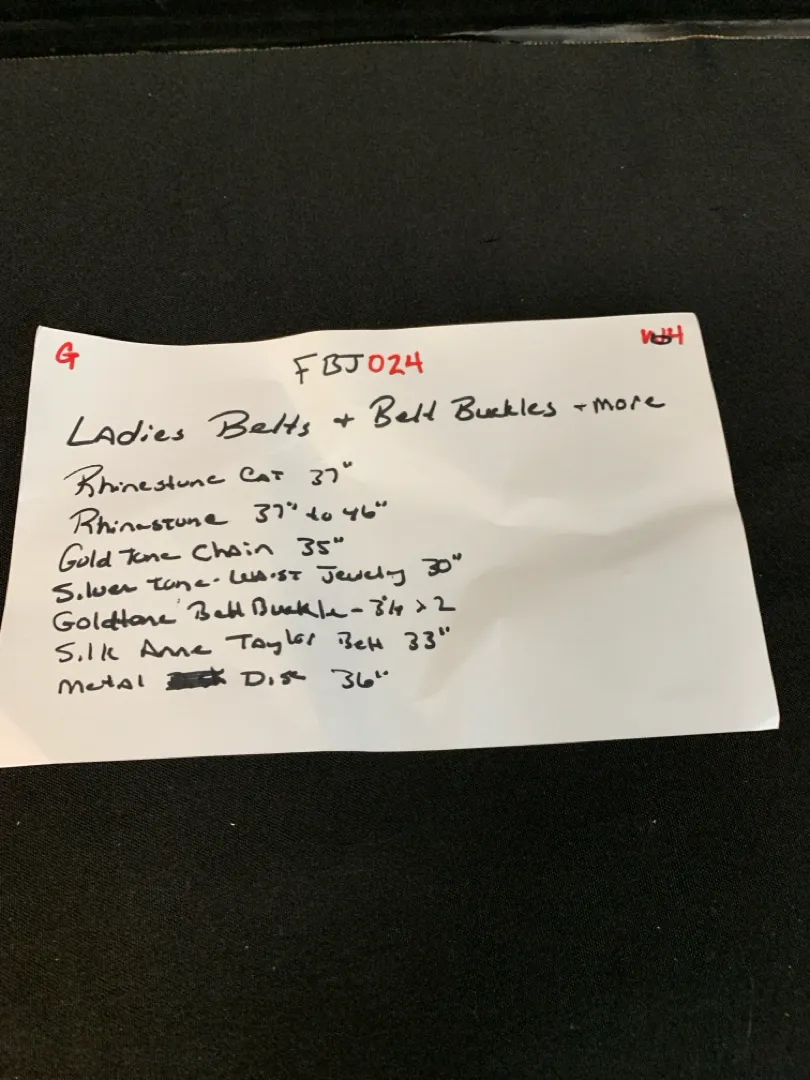 G FBJ024 WH
Ladies Belts + Belt Buckles + more
Rhinestone Cat 37"
Rhinestone 37" to 46"
Gold Tone Chain 35"
Silver Tone - Waist Jewelry 30"
Goldtone Belt Buckle -
Silk Anne Taylor Belt 33"
Metal Disc 36"